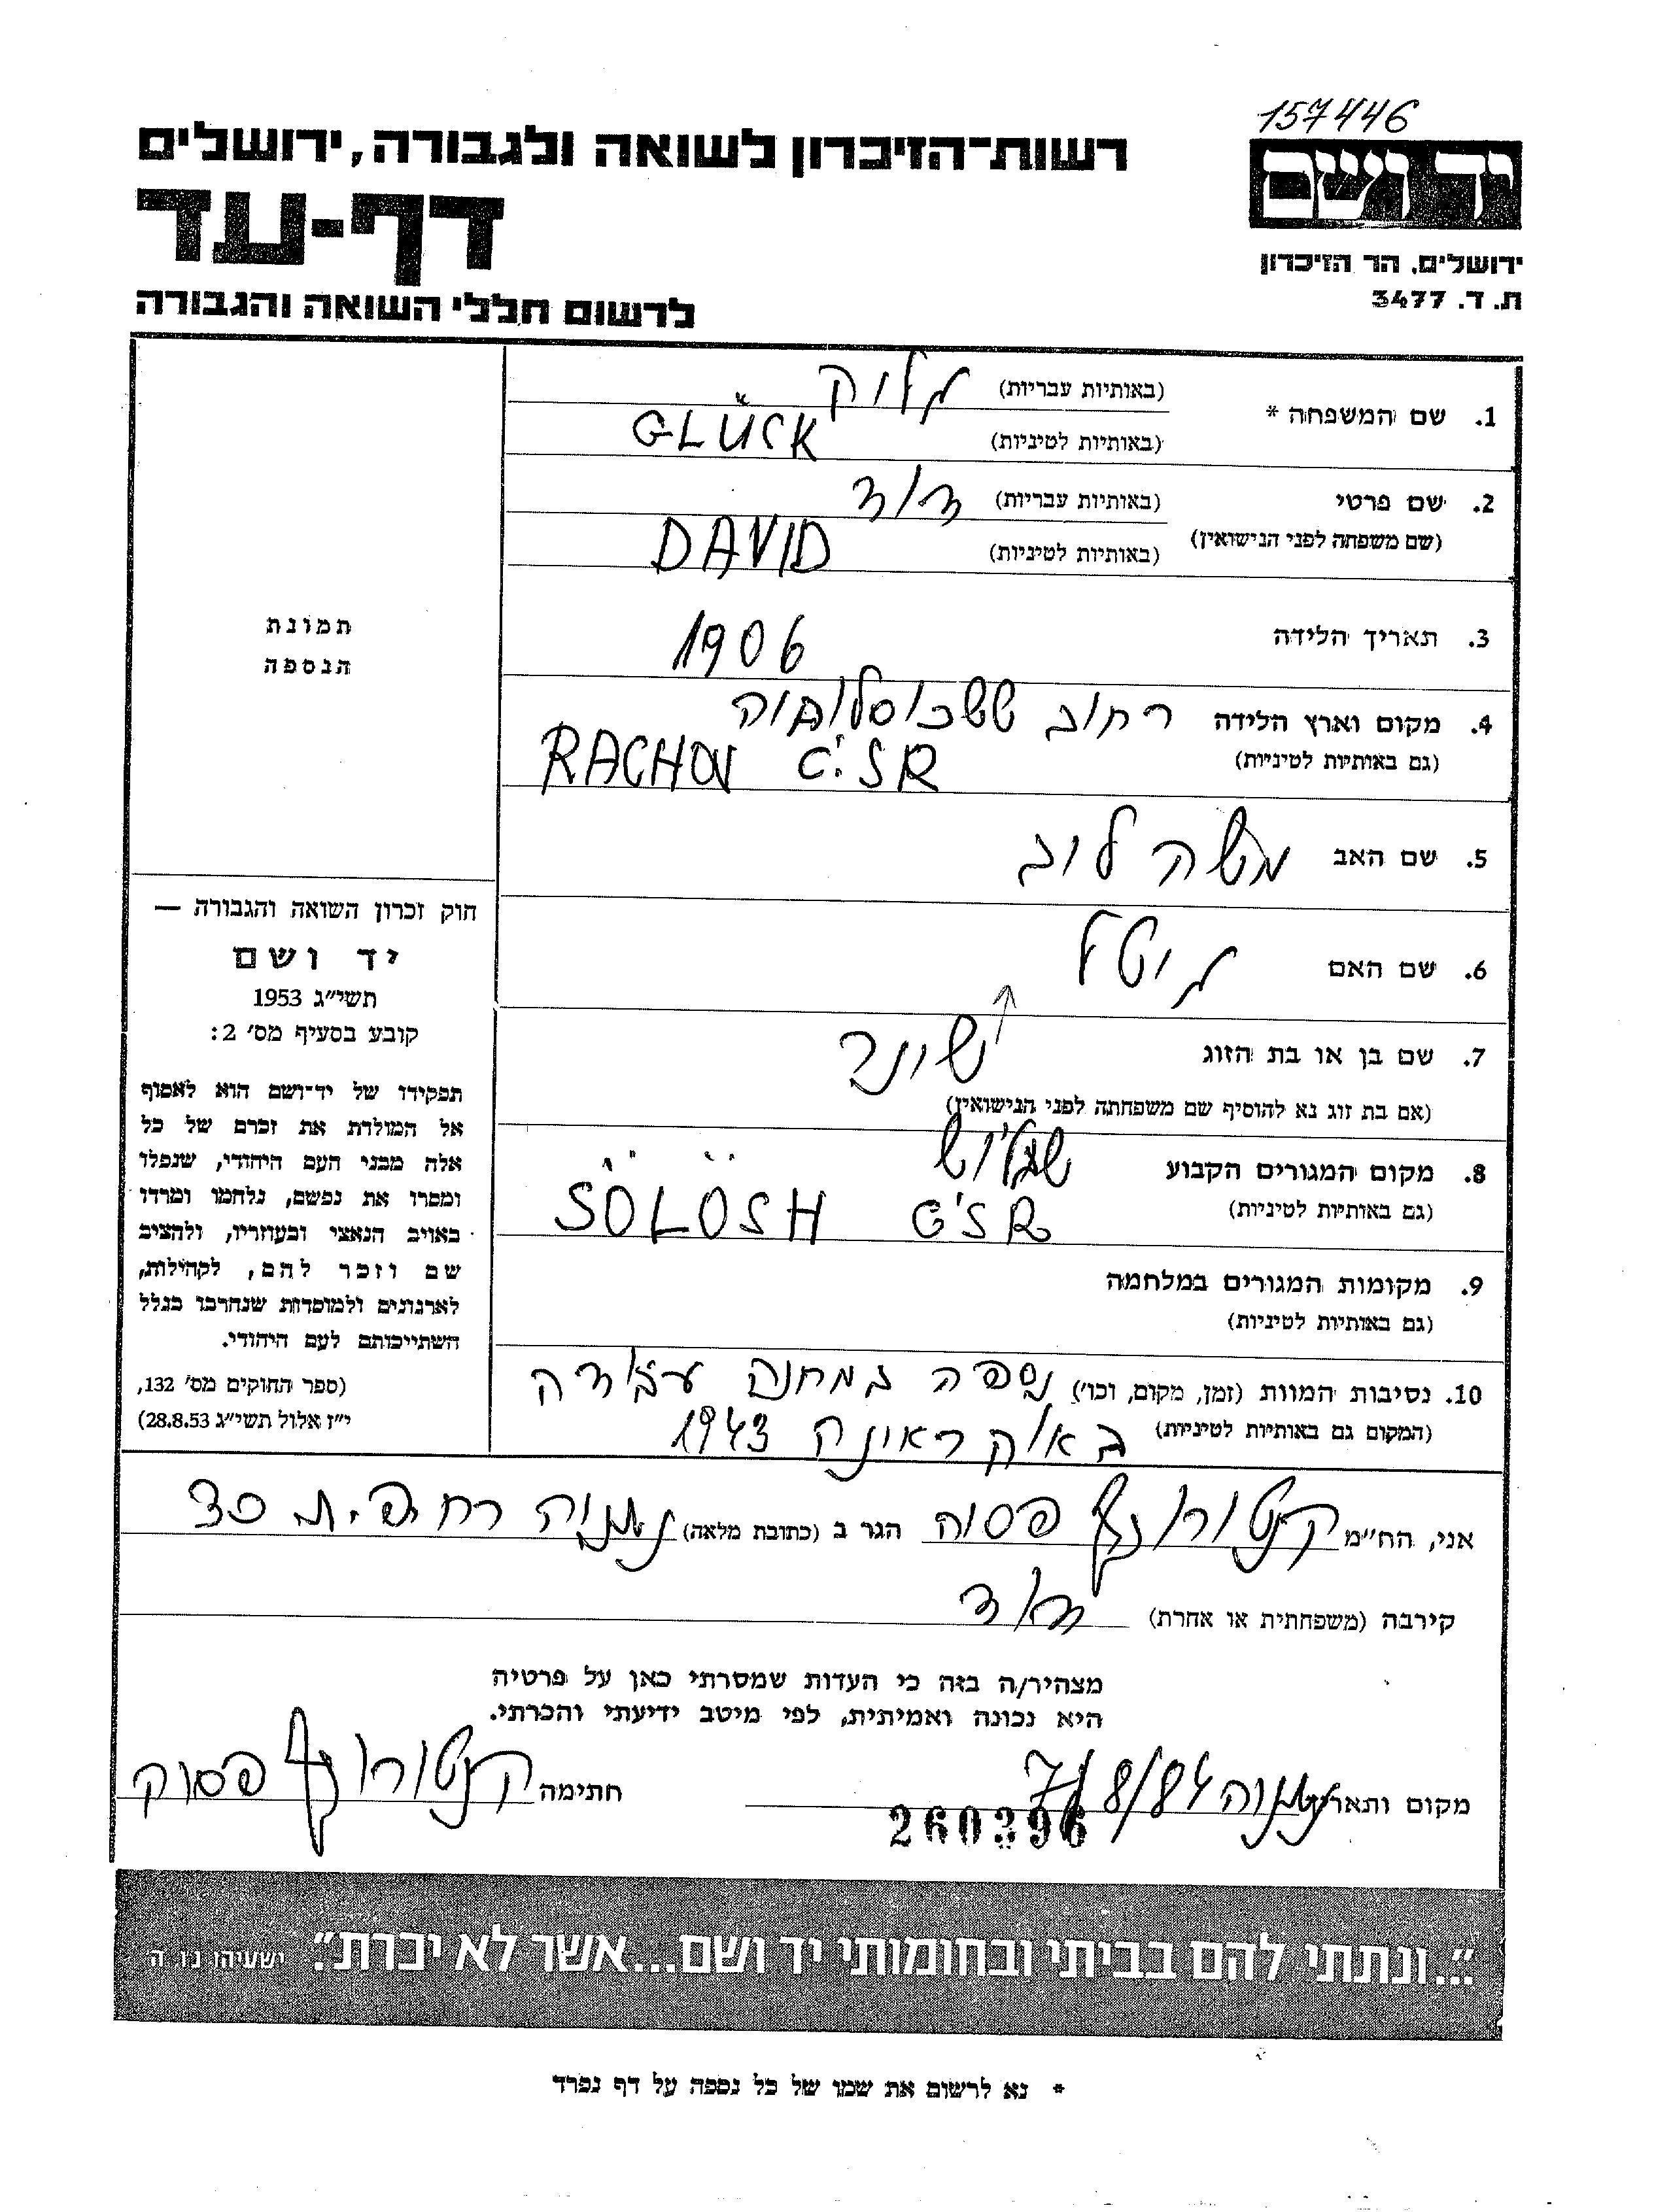 157446
יד ושם
רשות־הזיכרון לשואה ולגבורה, ירושלים
דף-עד
לרשום חללי השואה והגבורה
ירושלים, הר הזיכרון
ת. ד. 3477
1. שם המשפחה * (באותיות עבריות) גלוק
(באותיות לטיניות) GLÜCK
2. שם פרטי (באותיות עבריות) דוד
(שם משפחה לפני הנישואין) (באותיות לטיניות) DAVID
3. תאריך הלידה 1906
4. מקום וארץ הלידה רחוב ששכוסלובקיה
(גם באותיות לטיניות) RACHOV C'SR
5. שם האב משה לוב
6. שם האם גיטל
7. שם בן או בת הזוג
(אם בת זוג נא להוסיף שם משפחתה לפני הנישואין)
8. מקום המגורים הקבוע
(גם באותיות לטיניות) SÖLÖSH C'SR
9. מקומות המגורים במלחמה
(גם באותיות לטיניות)
10. נסיבות המוות (זמן, מקום, וכו') נספה במחנה עבודה
(המקום גם באותיות לטיניות) באוקראינה 1943
תמונת
הנספה
חוק זכרון השואה והגבורה —
יד ושם
תשי״ג 1953
קובע בסעיף מס' 2:
תפקידו של יד־ושם הוא לאסוף
אל המולדת את זכרם של כל
אלה מבני העם היהודי, שנפלו
ומסרו את נפשם, נלחמו ומרדו
באויב הנאצי ובעוזריו, ולהציב
שם וזכר להם, לקהילות,
לארגונים ולמוסדות שנחרבו בגלל
השתייכותם לעם היהודי.
(ספר החוקים מס' 132,
י״ז אלול תשי״ג 28.8.53)
אני, הח״מ קנטורוביץ הגר ב (כתובת מלאה) נתניה
קירבה (משפחתית או אחרת) דוד
מצהיר/ה בזה כי העדות שמסרתי כאן על פרטיה
היא נכונה ואמיתית, לפי מיטב ידיעתי והכרתי.
מקום ותאריך נתניה 7/8/84 חתימה
260396
"...ונתתי להם בביתי ובחומותי יד ושם...אשר לא יכרת". ישעיהו נו ה
* נא לרשום את שמו של כל נספה על דף נפרד